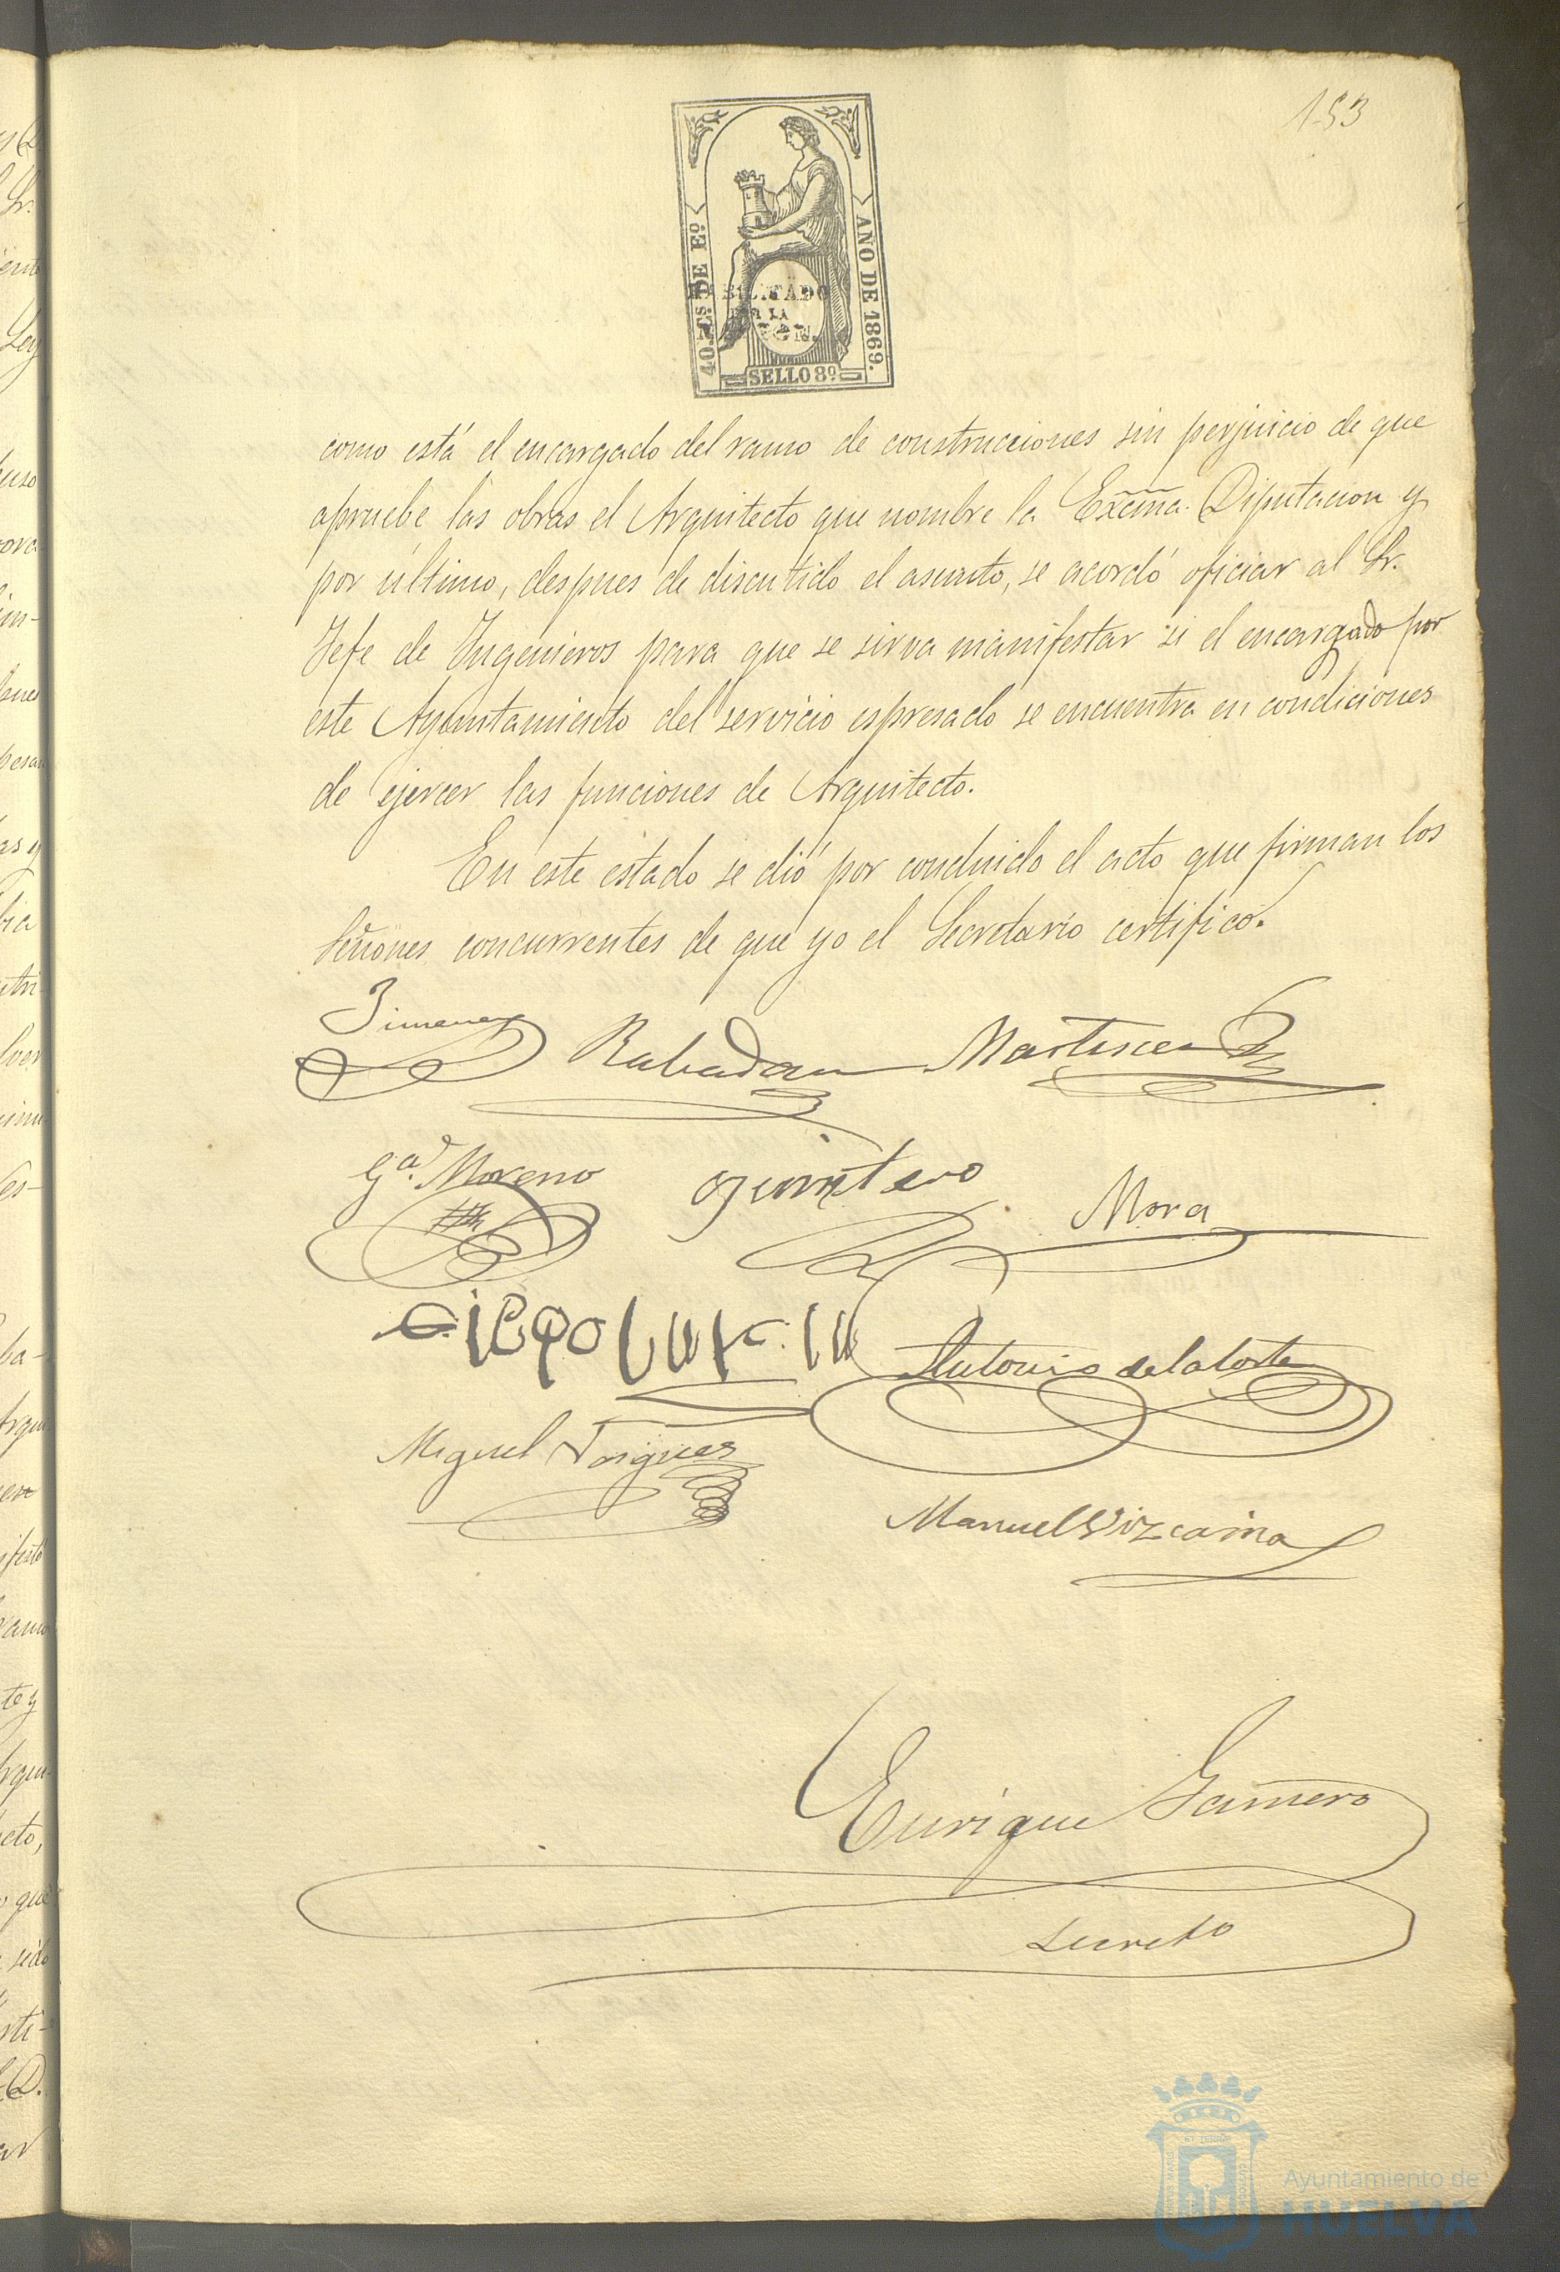 153
40 MS. DE Eº
AÑO DE 1869.
HABILITADO
POR LA
NACION.
SELLO 8º
como está el encargado del ramo de construcciones sin perjuicio de que
apruebe las obras el Arquitecto que nombre la Excma. Diputacion y
por último, despues de discutido el asunto, se acordó oficiar al Sr.
Jefe de Ingenieros para que se sirva manifestar si el encargado por
este Ayuntamiento del servicio espresado se encuentra en condiciones
de ejercer las funciones de Arquitecto.
En este estado se dió por concluido el acto que firman los
Señores concurrentes de que yo el Secretario certifico.
Jimenez Rabadan Martinez
Gª Moreno Quintero Mora
Diego Antonio de la Corte
Miguel Manuel Vizcaino
Enrique Gamero
Secreto
Ayuntamiento de
HUELVA